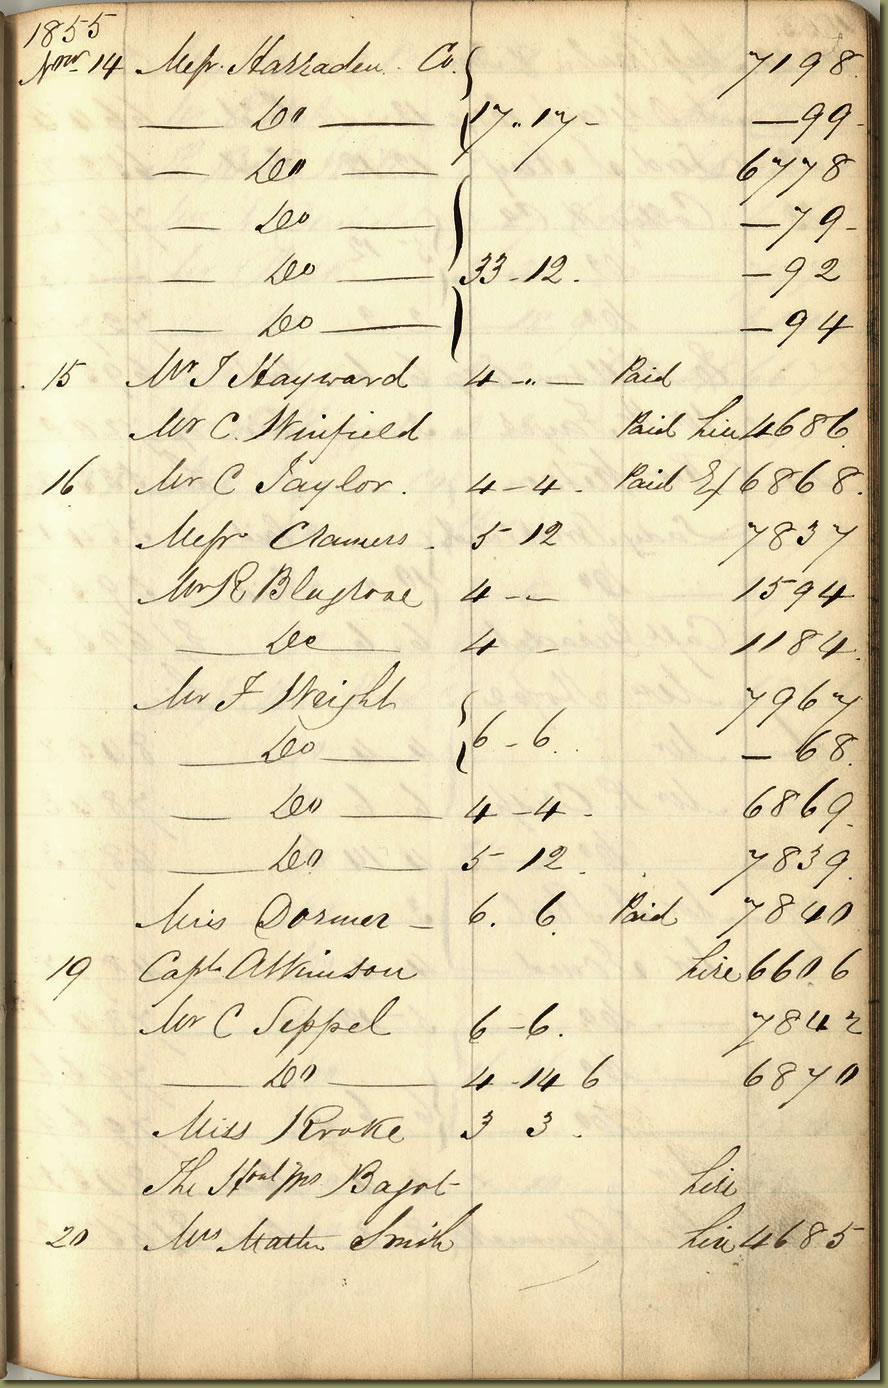 1855
Novr 14 Messr. Harraden Co. 7198.
— Do — 17 „ 17 - — 99 -
— Do — 6778
— Do — — 79 -
— Do — 33 - 12. — 92
— Do — — 94
15 Mr J Hayward 4 - „ — Paid
Mr C. Winfield Paid hire 4686.
16 Mr C Taylor. 4 - 4 - Paid Ex 6868.
Messr Cramers. 5 12 7837
Mr R Blagrove 4 - - 1594
Do 4 - 1184.
Mr F Weight 7967
— Do — 6 - 6. — 68.
— Do — 4 - 4 - 6869.
— Do — 5 12. 7839.
Miss Dormer — 6. 6. Paid 7840
19 Capt. Atkinson hire 6606
Mr C Seppel 6 - 6. 7842
— Do — 4 - 14 6 6870
Miss Kroke 3 3.
The Honl Mrs Bagot hire
20 Mrs Smith hire 4685